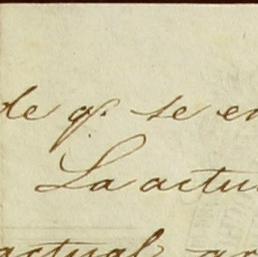 de q. se en
La actu
actual gr